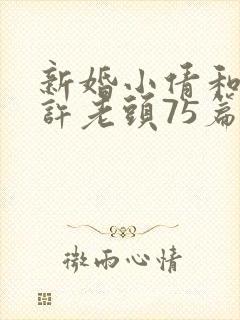 新婚小倩和
許老頭75篇
微雨心情